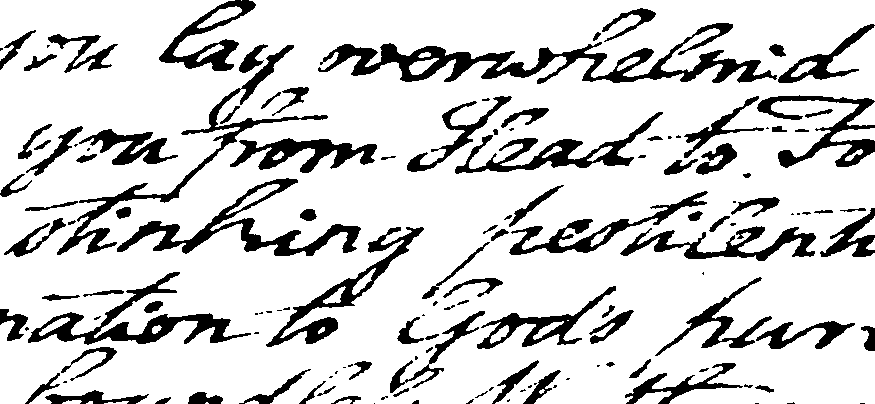 you lay overwhelm'd
you from Head to Fo
stinking pestilent
nation to God's pur